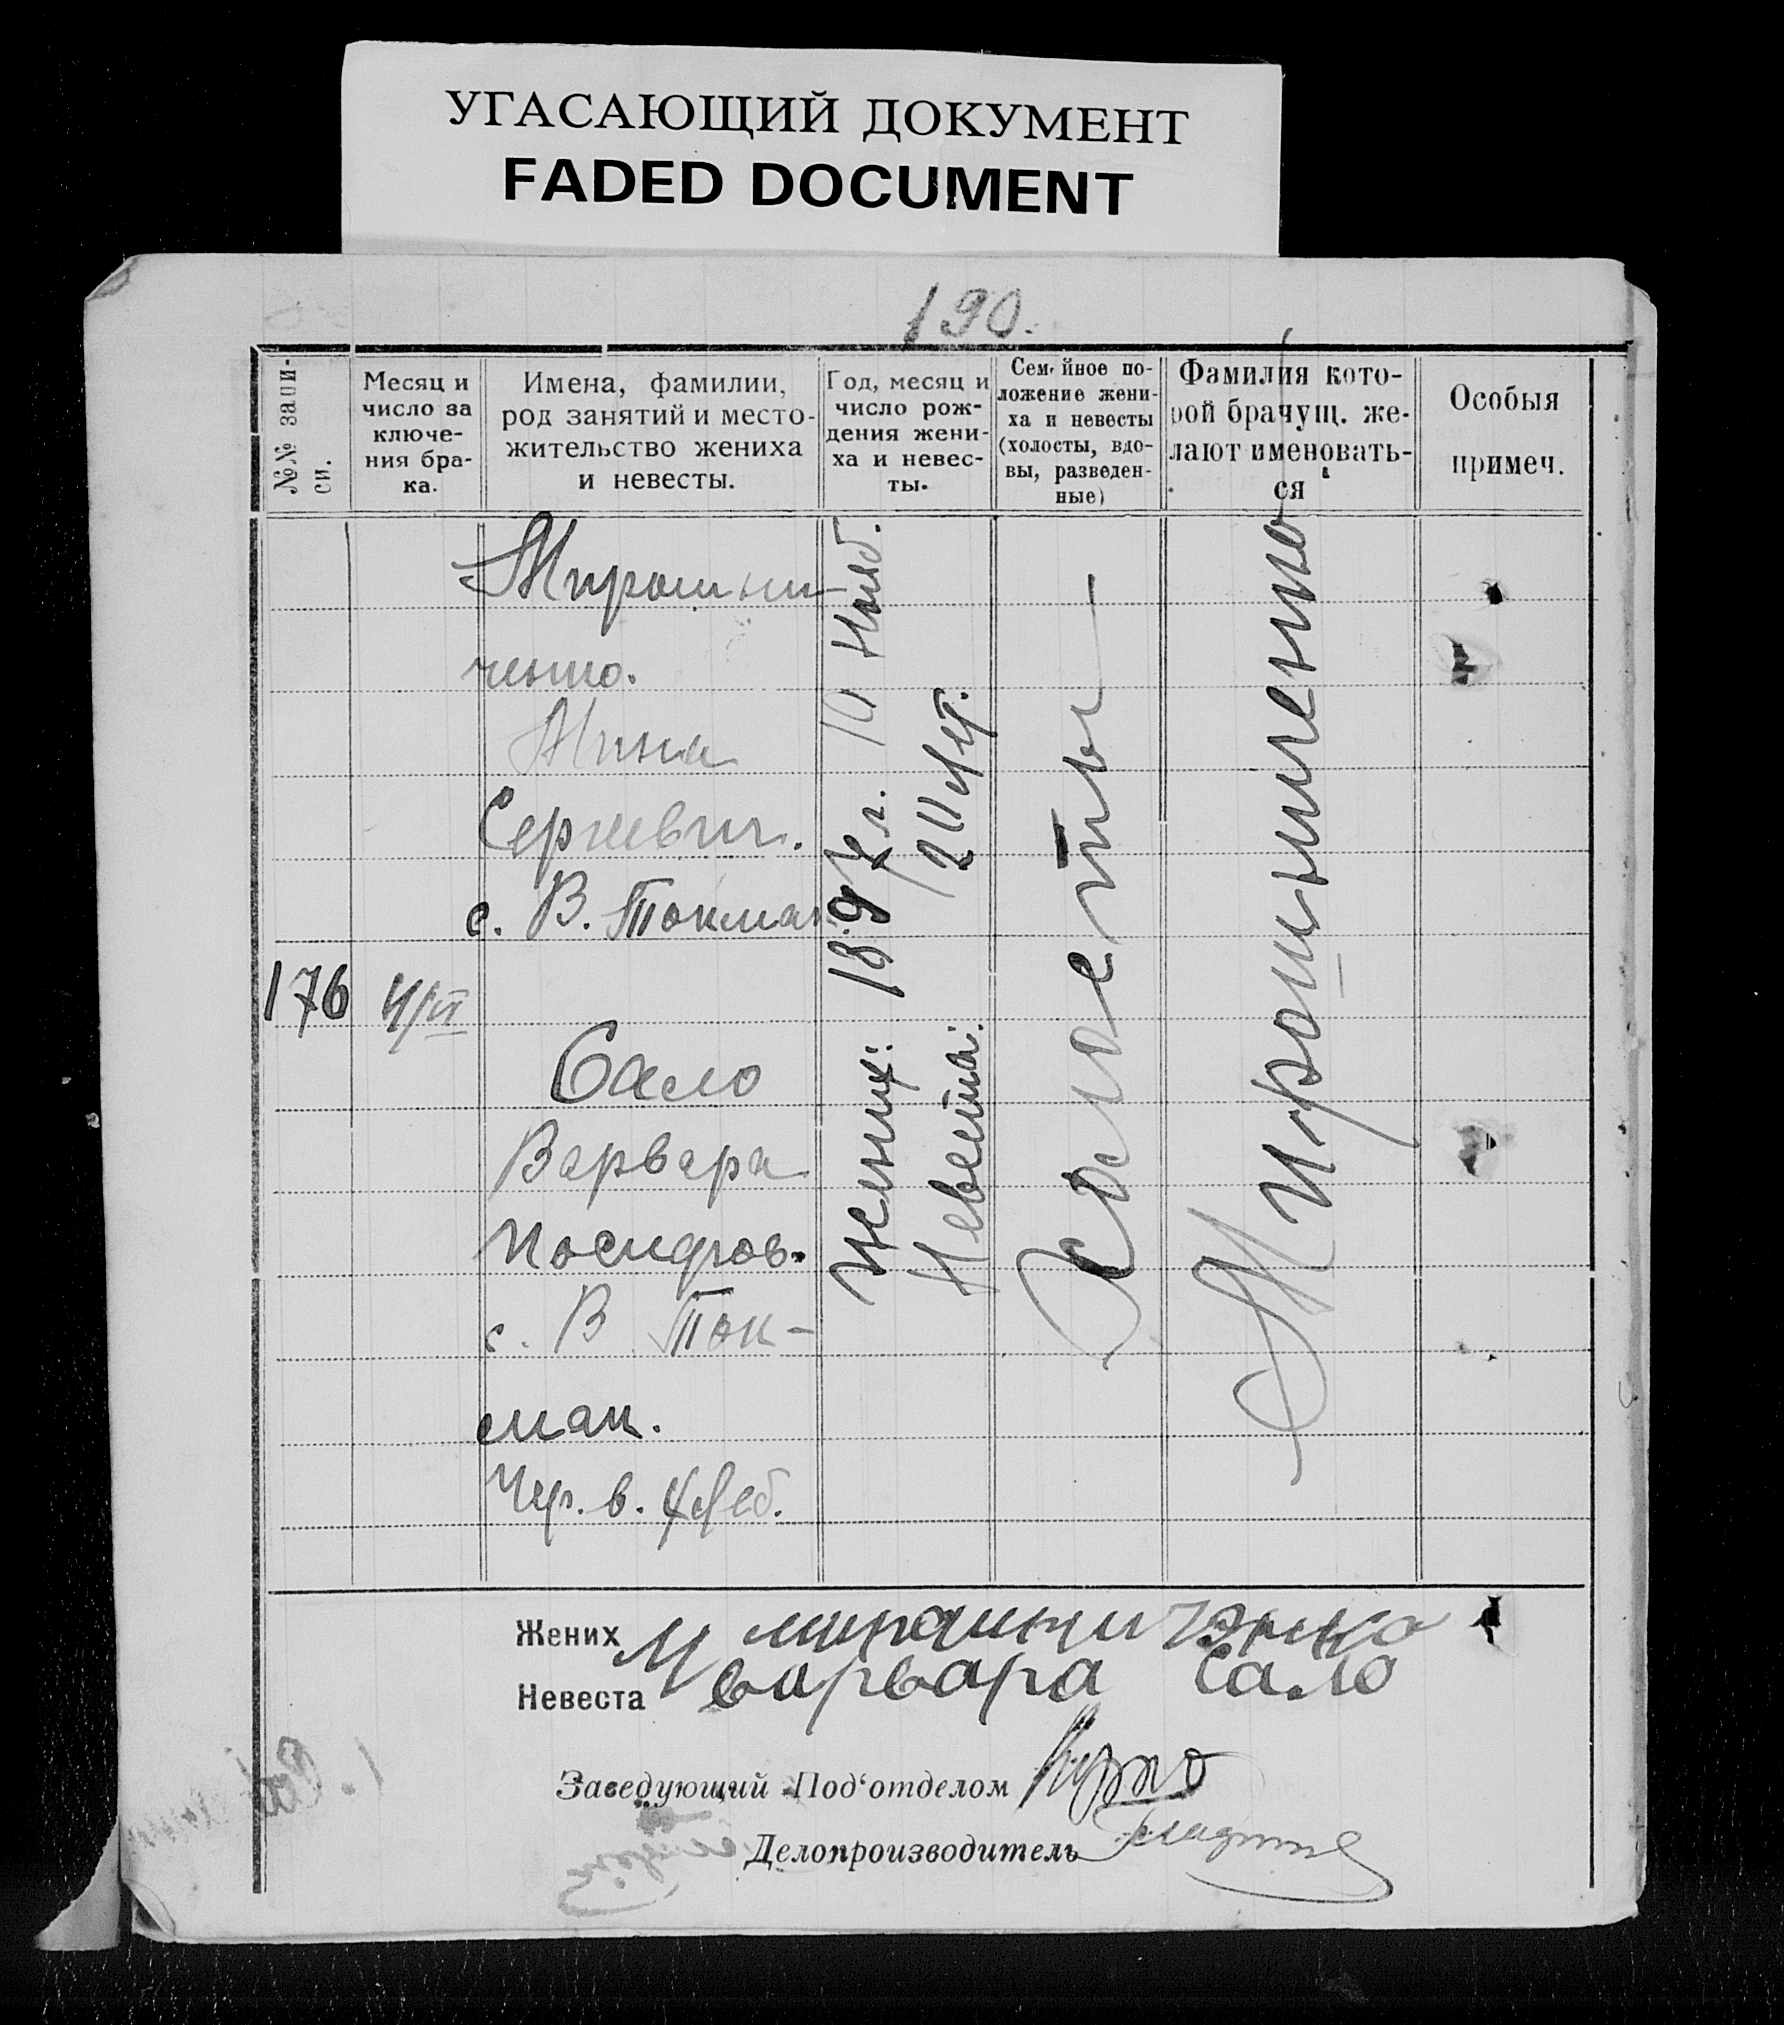 УГАСАЮЩИЙ ДОКУМЕНТ
FADED DOCUMENT
190.
№№ запи-
си.
Месяц и
число за
ключе-
ния бра-
ка.
Имена, фамилии,
род занятий и место-
жительство жениха
и невесты.
Год, месяц и
число рож-
дения жени-
ха и невес-
ты.
Семейное по-
ложение жени-
ха и невесты
(холосты, вдо-
вы, разведен-
ные)
Фамилия кото-
рой брачущ. же-
лают именовать-
ся
Особыя
примеч.
Мирошни-
ченко.
Мина
Сергеевич.
с. В. Токмак.
176
4/VI
Сало
Варвара
Иосифов.
с. В Ток-
мак.
Жених: 1897 г. 10 Нояб.
Невеста:
Холосты
Мирошниченко
Жених М мирошниченко
Невеста варвара Сало
Заведующий Под'отделом
Делопроизводитель